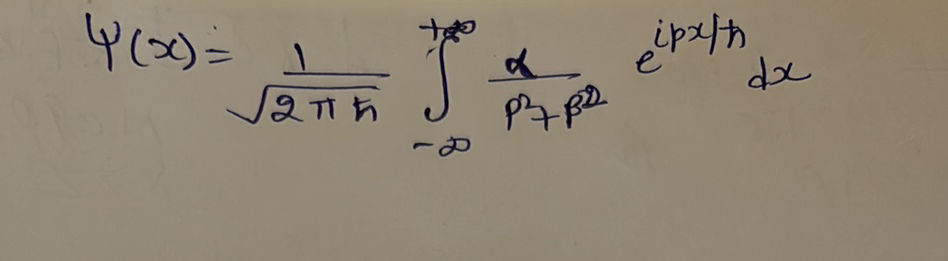 ψ(x) = 1/√(2πħ) ∫_{-∞}^{+∞} α/(p²+β²) e^{ipx/ħ} dx